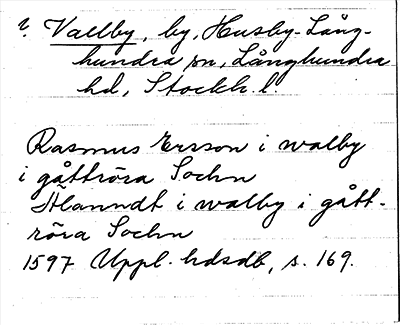 1. Vallby, by, Husby-Lång-
hundra sn, Långhundra
hd, Stockh. l.
Rasmus Ersson i walby
i gåttröra Sochn
i walby i gått-
röra Sochn
1597 Uppl. hdsdb, s. 169.